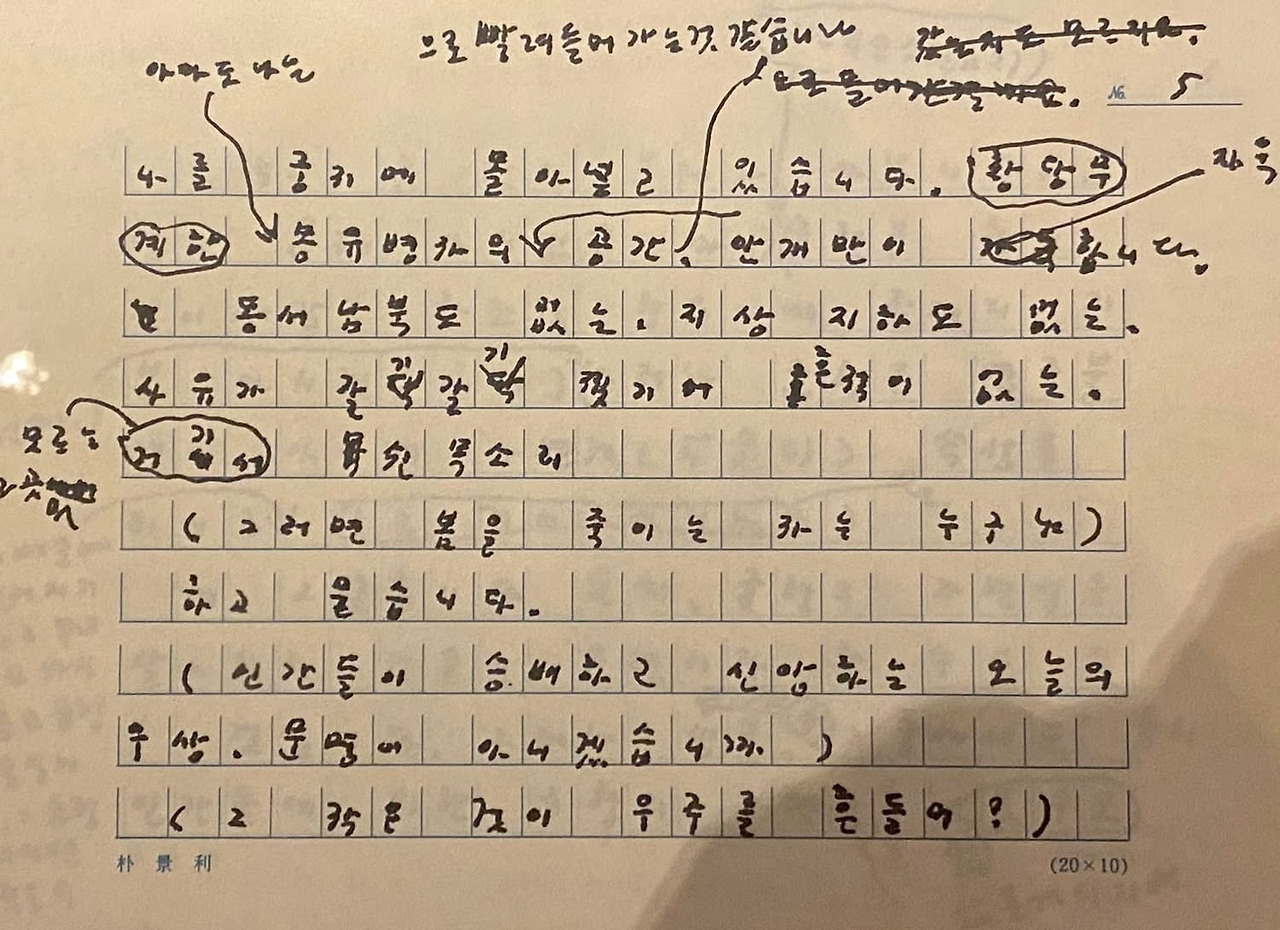 으로 빨려들어 가는것 같습니다
아마도 나는
№ 5
나를 공키에 몰아넣고 있습니다. 황당무
자욱
계한 몽유병자의 공간. 안개만이 합니다.
동서남북도 없는. 지상 지하도 없는.
사유가 갈기갈기 찢기어 흔적이 없는.
모르는
그곳
거기서 목쉰 목소리
(그러면 봄을 죽이는 자는 누구뇨)
하고 울습니다.
(인간들이 숭배하고 신앙하는 오늘의
우상. 문명이 아니겠습니까.)
(그 작은 것이 우주를 흔들어?)
朴景利
(20×10)